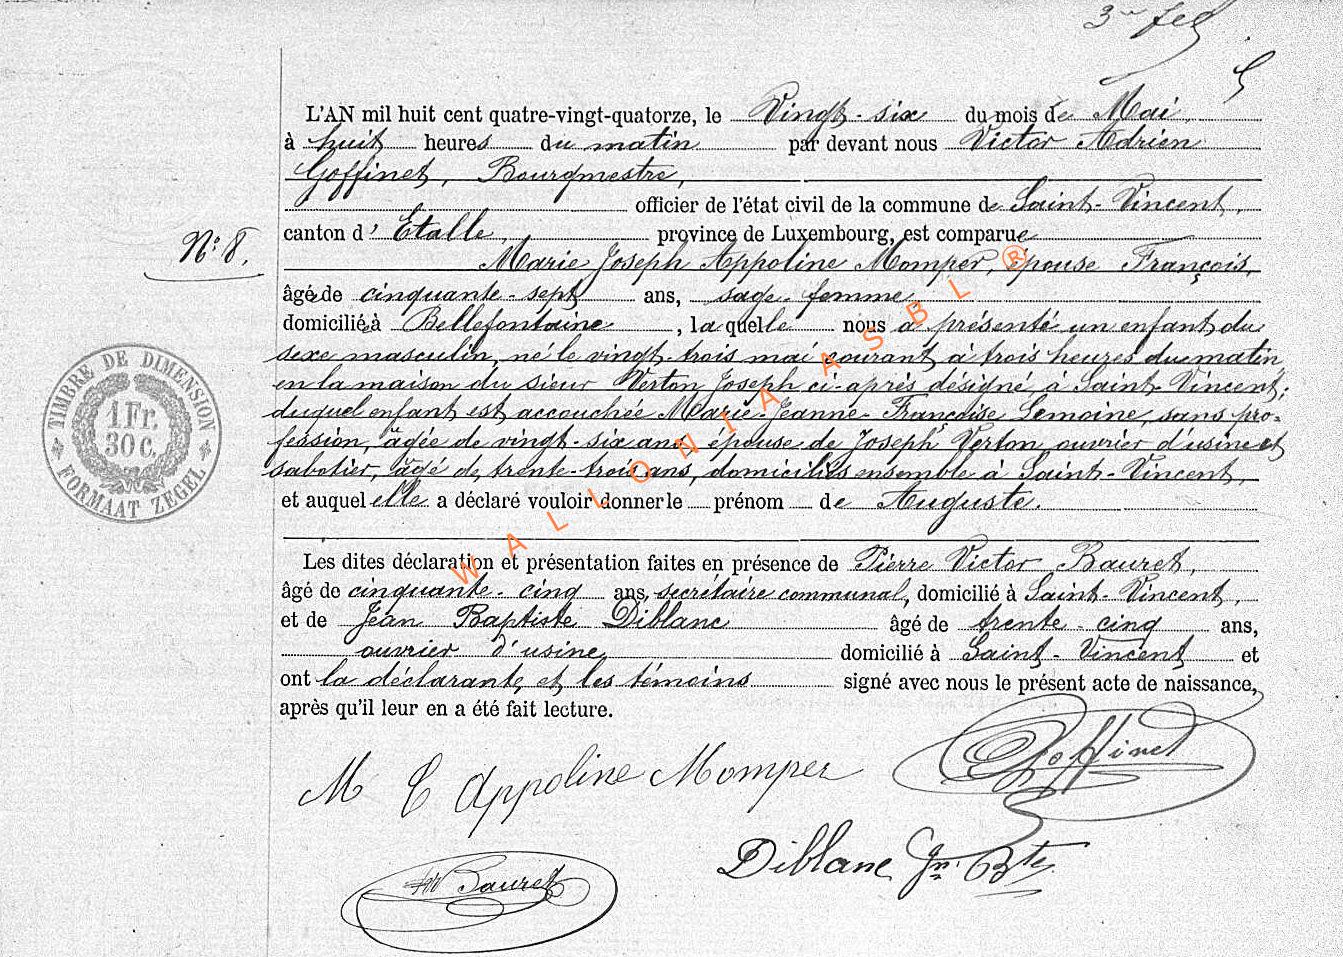 3me feu
5
L'AN mil huit cent quatre-vingt-quatorze, le Vingt-six du mois de Mai,
à huit heures du matin par devant nous Victor Adrien
Goffinet, Bourgmestre,
officier de l'état civil de la commune de Saint-Vincent,
canton d'Etalle, province de Luxembourg, est comparue
N° 8.
Marie Joseph Appoline Momper, épouse François,
âgée de cinquante-sept ans, sage-femme
domiciliée à Bellefontaine, laquelle nous a présenté un enfant du
sexe masculin, né le vingt-trois mai courant à trois heures du matin,
en la maison du sieur Verton Joseph ci-après désigné à Saint-Vincent;
duquel enfant est accouchée Marie-Jeanne-Françoise Lemoine, sans pro-
fession, âgée de vingt-six ans, épouse de Joseph Verton, ouvrier d'usine et
sabotier, âgé de trente-trois ans, domiciliés ensemble à Saint-Vincent,
et auquel elle a déclaré vouloir donner le prénom de Auguste.
TIMBRE DE DIMENSION
1 Fr.
30 C.
FORMAAT ZEGEL
WALLONIA ASBL ®
Les dites déclaration et présentation faites en présence de Pierre Victor Bauret,
âgé de cinquante-cinq ans, secrétaire communal, domicilié à Saint-Vincent,
et de Jean Baptiste Diblanc âgé de trente-cinq ans,
ouvrier d'usine domicilié à Saint-Vincent et
ont la déclarante et les témoins signé avec nous le présent acte de naissance,
après qu'il leur en a été fait lecture.
M C Appoline Momper
Goffinet
Diblanc Jn Bte
Bauret